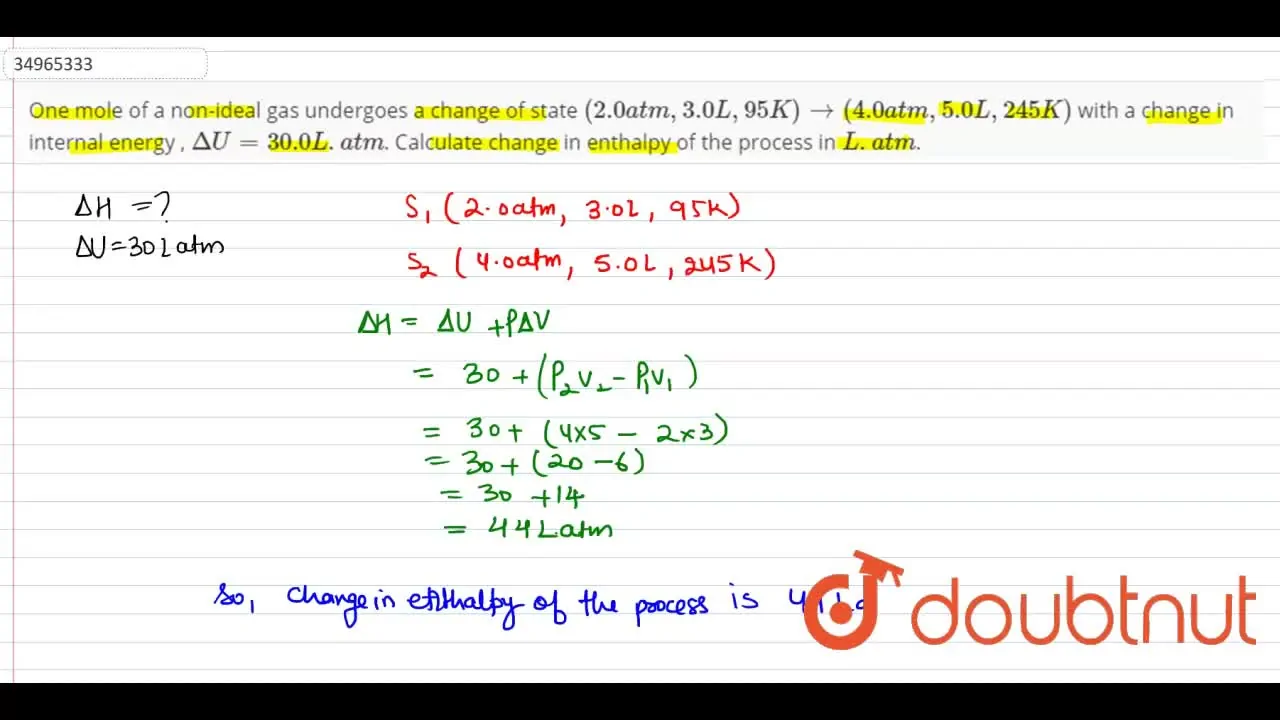 34965333
One mole of a non-ideal gas undergoes a change of state (2.0atm, 3.0L, 95K) → (4.0atm, 5.0L, 245K) with a change in
internal energy , ΔU = 30.0L. atm. Calculate change in enthalpy of the process in L. atm.
ΔH = ?
ΔU = 30 L atm
S₁ (2.0atm, 3.0L, 95K)
S₂ (4.0atm, 5.0L, 245K)
ΔH = ΔU + PΔV
= 30 + (P₂V₂ - P₁V₁)
= 30 + (4×5 - 2×3)
= 30 + (20 - 6)
= 30 + 14
= 44 L.atm
So, change in enthalpy of the process is
doubtnut